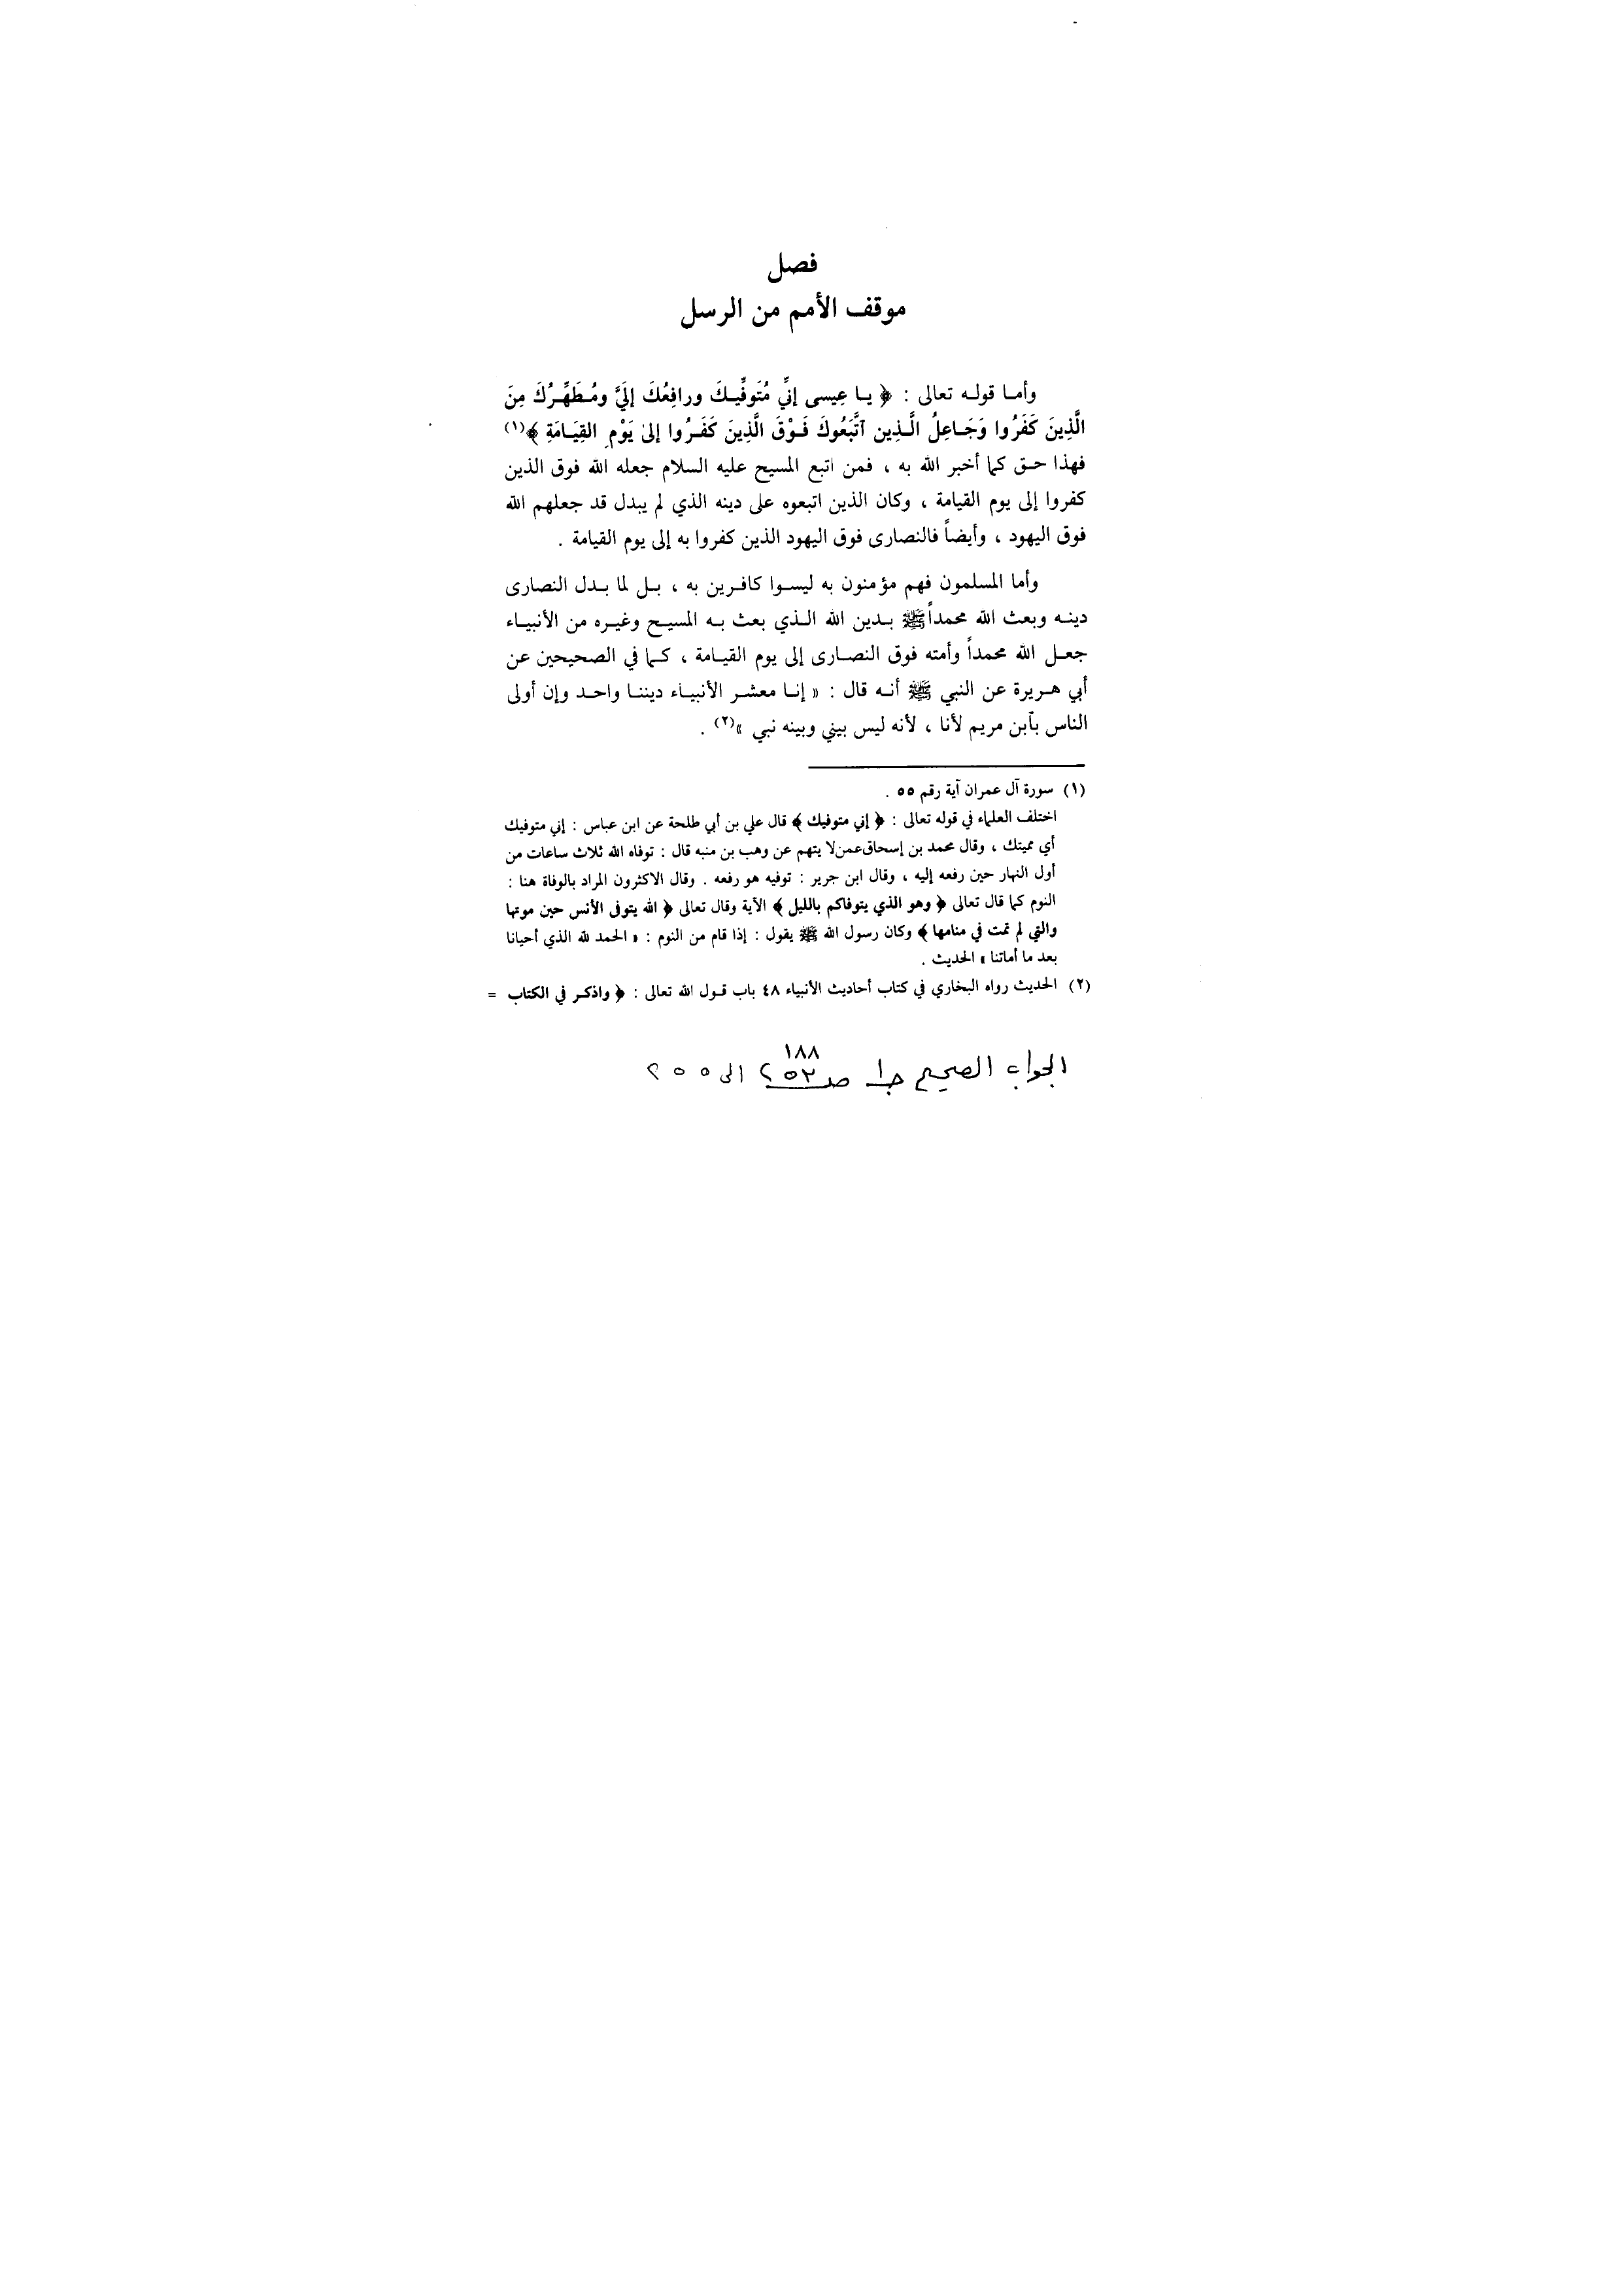 فصل
موقف الأمم من الرسل
وأما قوله تعالى : ﴿ يا عِيسى إنِّي مُتَوفِّيكَ ورافِعُكَ إلَيَّ ومُطَهِّرُكَ مِنَ
الَّذِينَ كَفَرُوا وَجَاعِلُ الَّذِين آتَّبَعُوكَ فَوْقَ الَّذِينَ كَفَرُوا إلىٰ يَوْمِ القِيَامَةِ ﴾(١)
فهذا حق كما أخبر الله به ، فمن اتبع المسيح عليه السلام جعله الله فوق الذين
كفروا إلى يوم القيامة ، وكان الذين اتبعوه على دينه الذي لم يبدل قد جعلهم الله
فوق اليهود ، وأيضاً فالنصارى فوق اليهود الذين كفروا به إلى يوم القيامة .
وأما المسلمون فهم مؤمنون به ليسوا كافرين به ، بل لما بدل النصارى
دينه وبعث الله محمداً ﷺ بدين الله الذي بعث به المسيح وغيره من الأنبياء
جعل الله محمداً وأمته فوق النصارى إلى يوم القيامة ، كما في الصحيحين عن
أبي هريرة عن النبي ﷺ أنه قال : « إنا معشر الأنبياء ديننا واحد وإن أولى
الناس بآبن مريم لأنا ، لأنه ليس بيني وبينه نبي »(٢) .
(١) سورة آل عمران آية رقم ٥٥ .
اختلف العلماء في قوله تعالى : ﴿ إني متوفيك ﴾ قال علي بن أبي طلحة عن ابن عباس : إني متوفيك
أي مميتك ، وقال محمد بن إسحاق عمن لا يتهم عن وهب بن منبه قال : توفاه الله ثلاث ساعات من
أول النهار حين رفعه إليه ، وقال ابن جرير : توفيه هو رفعه . وقال الاكثرون المراد بالوفاة هنا :
النوم كما قال تعالى ﴿ وهو الذي يتوفاكم بالليل ﴾ الآية وقال تعالى ﴿ الله يتوفى الأنس حين موتها
والتي لم تمت في منامها ﴾ وكان رسول الله ﷺ يقول : إذا قام من النوم : « الحمد لله الذي أحيانا
بعد ما أماتنا » الحديث .
(٢) الحديث رواه البخاري في كتاب أحاديث الأنبياء ٤٨ باب قول الله تعالى : ﴿ واذكر في الكتاب =
١٨٨
الجواب الصحيح جـ١ صـ ٢٥٣ الى ٢٥٥